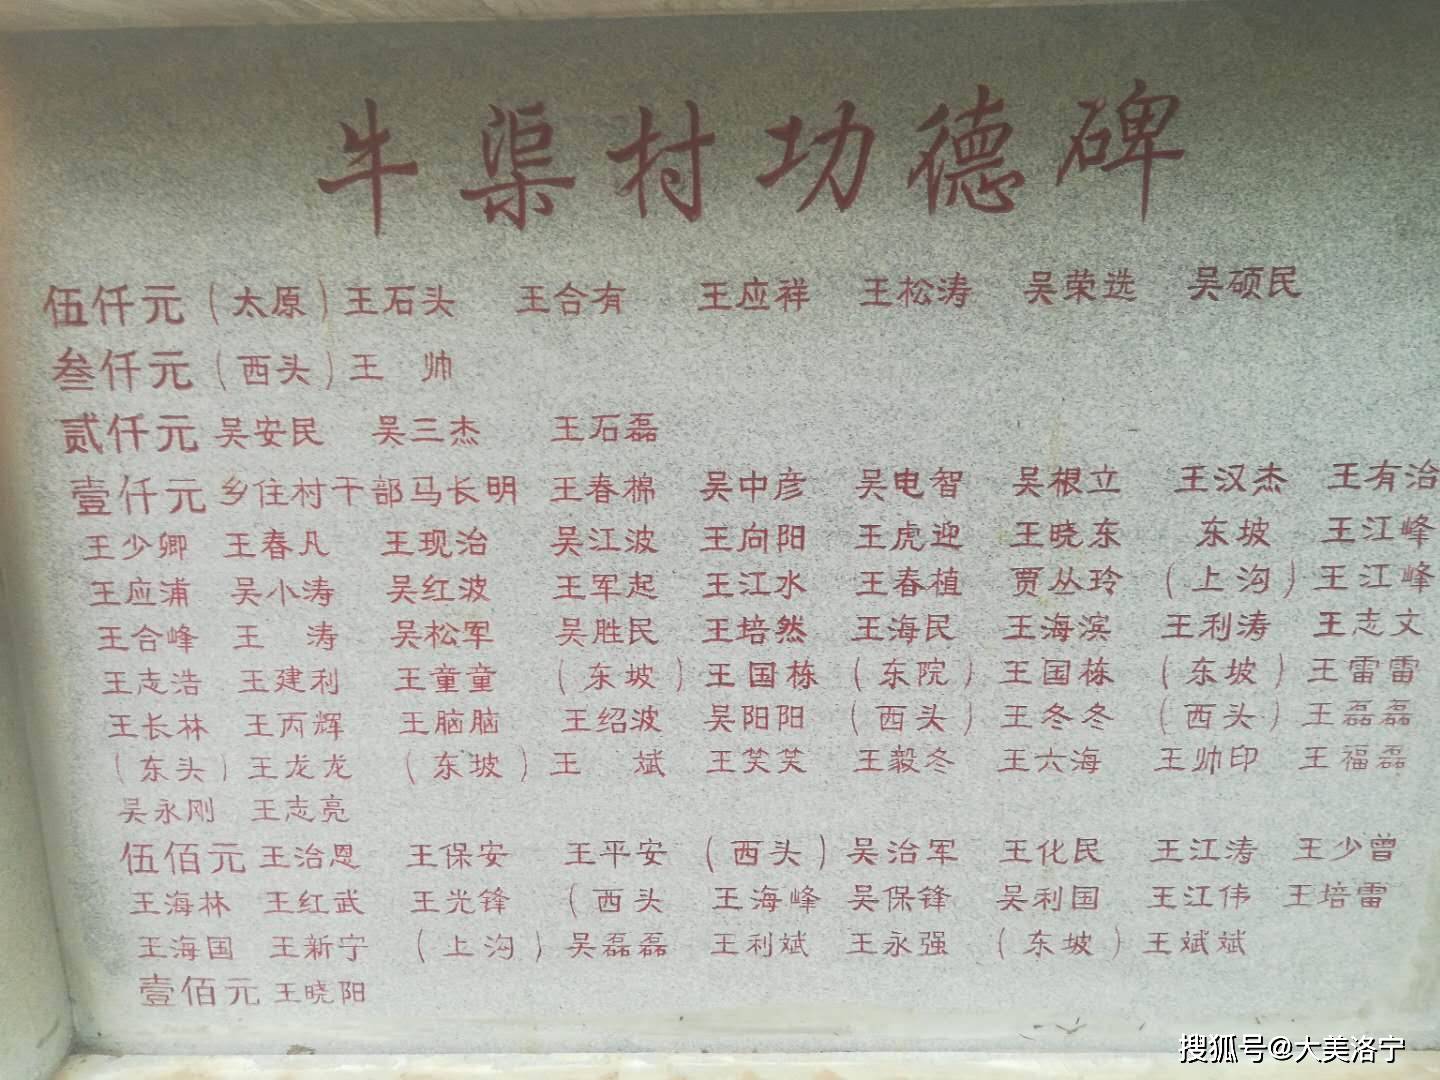 牛渠村功德碑
伍仟元(太原)王石头 王合有 王应祥 王松涛 吴荣选 吴硕民
叁仟元(西头)王 帅
贰仟元 吴安民 吴三杰 王石磊
壹仟元 乡住村干部马长明 王春棉 吴中彦 吴电智 吴根立 王汉杰 王有治
王少卿 王春凡 王现治 吴江波 王向阳 王虎迎 王晓东 东坡 王江峰
王应浦 吴小涛 吴红波 王军起 王江水 王春植 贾丛玲 (上沟)王江峰
王合峰 王 涛 吴松军 吴胜民 王培然 王海民 王海滨 王利涛 王志文
王志浩 王建利 王童童 (东坡)王国栋 (东院)王国栋 (东坡)王雷雷
王长林 王丙辉 王脑脑 王绍波 吴阳阳 (西头)王冬冬 (西头)王磊磊
(东头)王龙龙 (东坡)王 斌 王笑笑 王毅冬 王六海 王帅印 王福磊
吴永刚 王志亮
伍佰元 王治恩 王保安 王平安 (西头)吴治军 王化民 王江涛 王少曾
王海林 王红武 王光锋 (西头 王海峰 吴保锋 吴利国 王江伟 王培雷
王海国 王新宁 (上沟)吴磊磊 王利斌 王永强 (东坡)王斌斌
壹佰元 王晓阳
搜狐号@大美洛宁